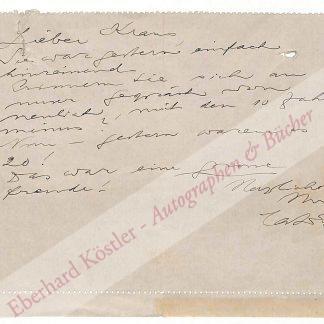 Lieber Kraus,
Sie war gestern einfach
hinreissend
Erinnern Sie sich an
unser Gespräch von
neulich, mit den 10 Jahr
minus?
Nun – gestern waren es
20!
Das war eine grosse
Freude!
Herzlichs
Eberhard Köstler - Autographen & Bücher